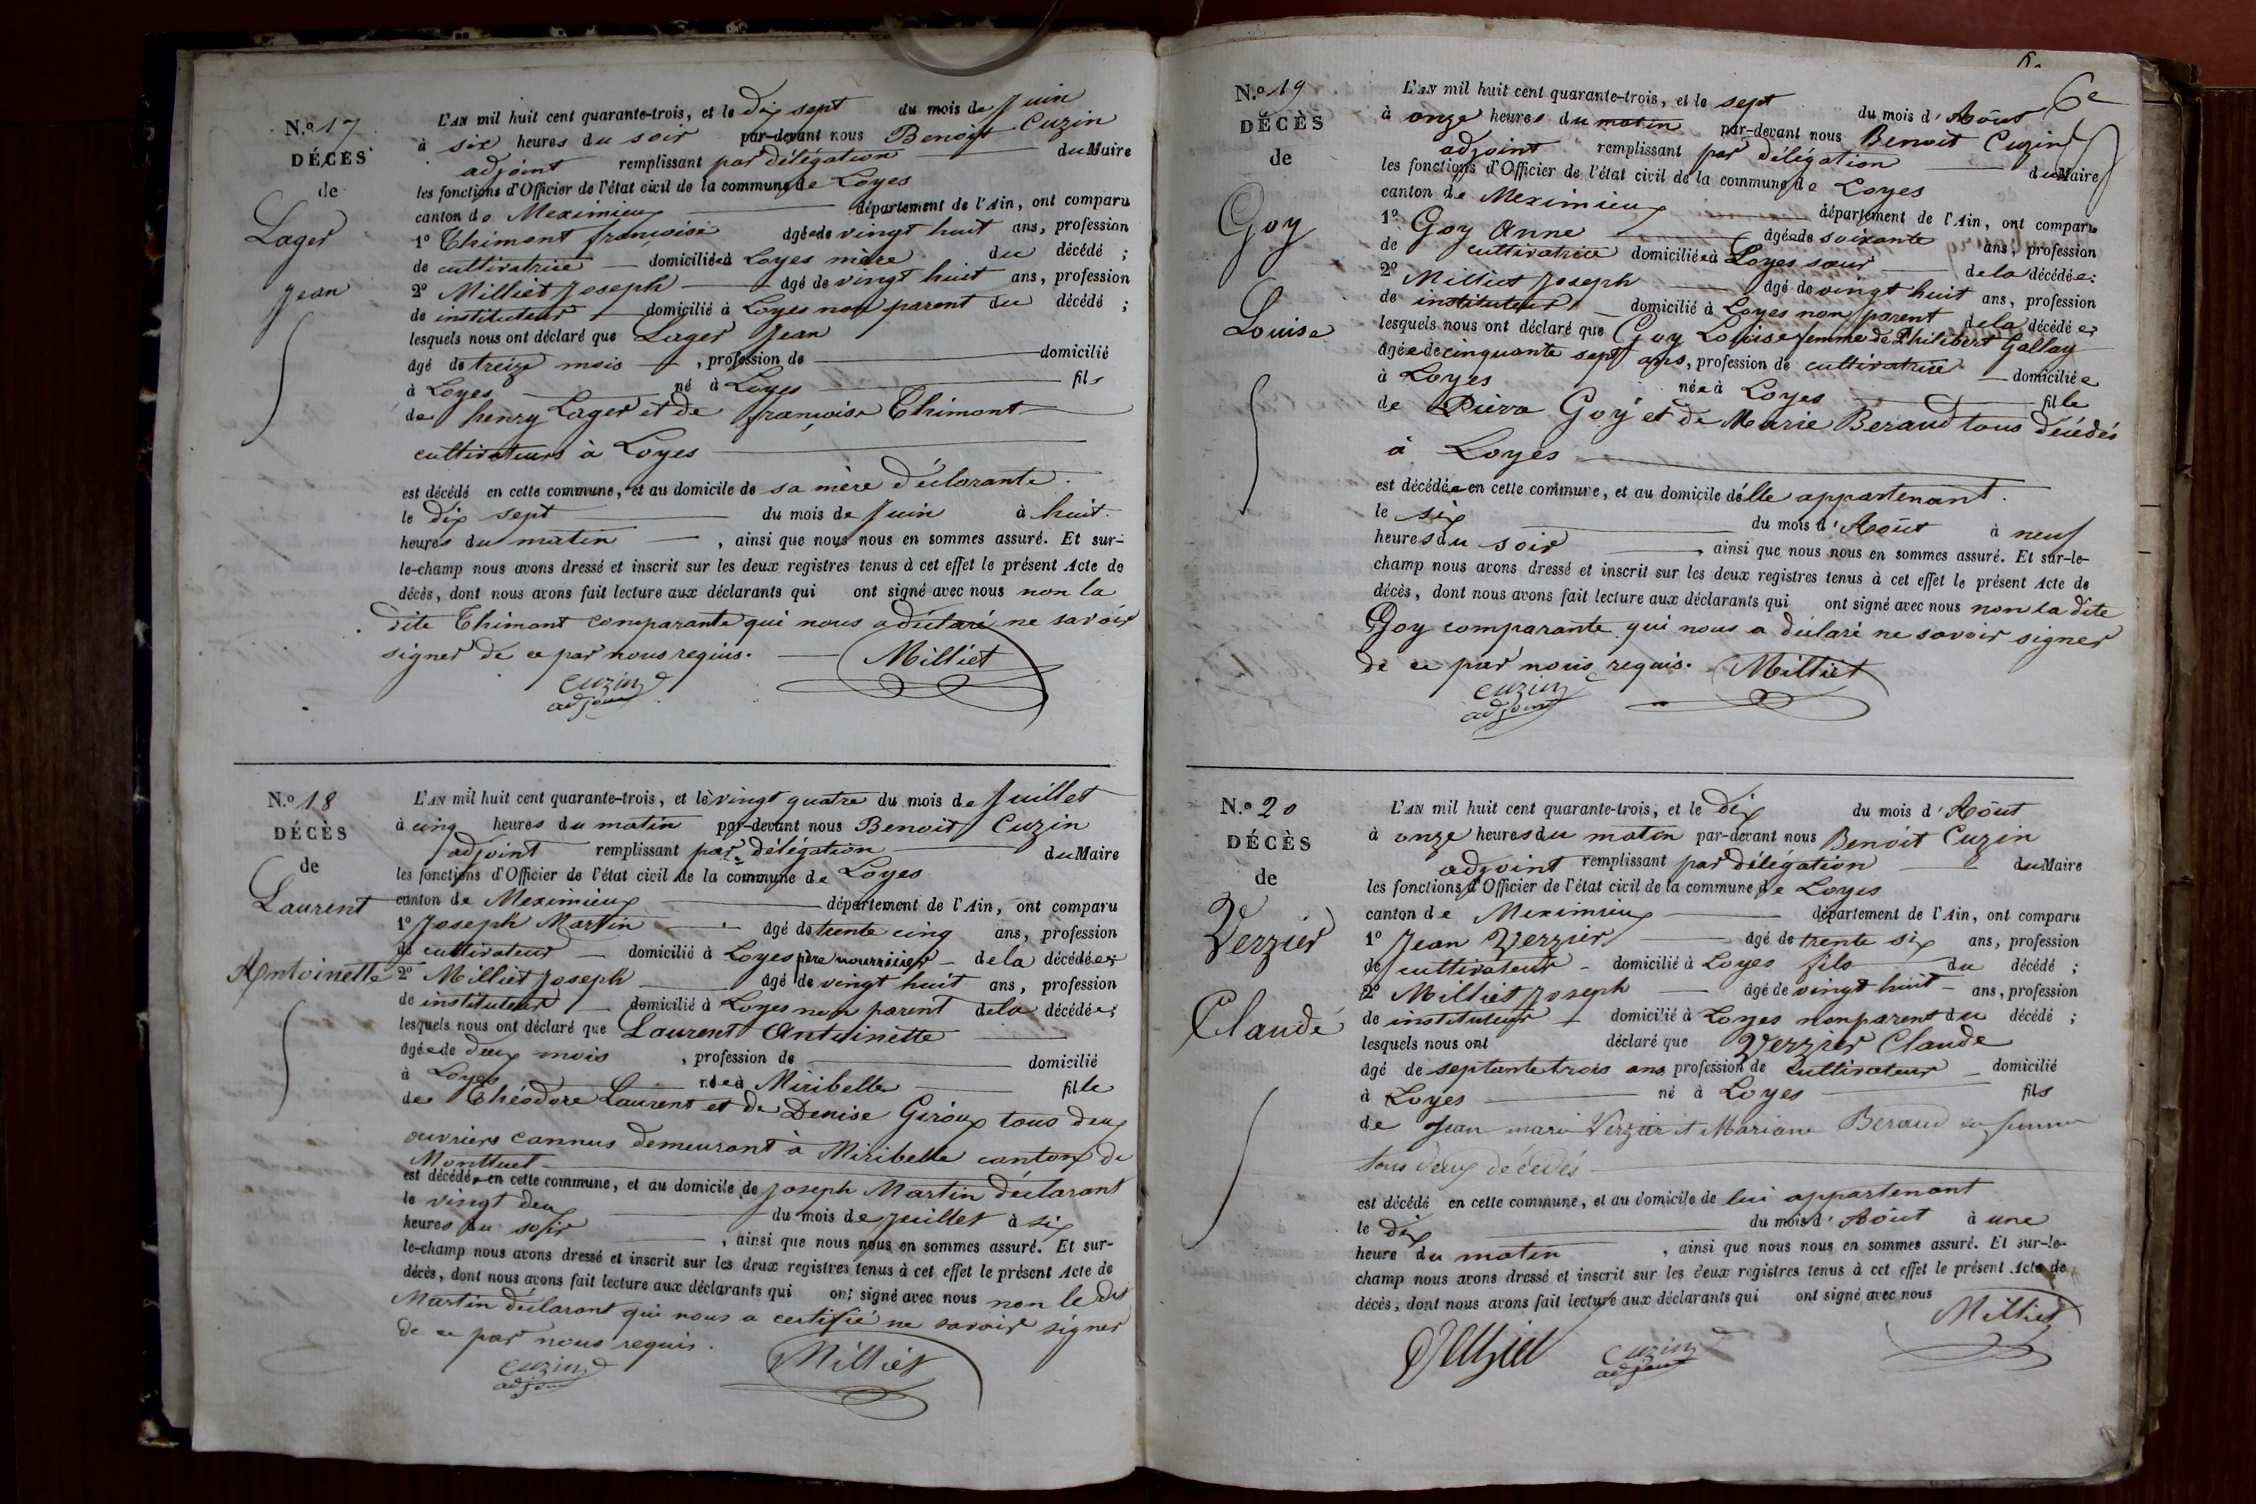 N.º 17
DÉCÈS
de
Lager
Jean
L'AN mil huit cent quarante-trois, et le dix sept du mois de Juin
à six heures du soir par-devant nous Benoit Cuzin
adjoint remplissant par délégation du Maire
les fonctions d'Officier de l'état civil de la commune de Loyes
canton de Meximieux département de l'Ain, ont comparu
1º Thimont françoise âgée de vingt huit ans, profession
de cultivatrice domiciliée à Loyes mère du décédé ;
2º Milliet Joseph âgé de vingt huit ans, profession
de instituteur domicilié à Loyes non parent du décédé ;
lesquels nous ont déclaré que Lager Jean
âgé de treize mois , profession de domicilié
à Loyes né à Loyes fils
de henry Lager et de françoise Thimont
cultivateurs à Loyes
est décédé en cette commune, et au domicile de sa mère déclarante.
le dix sept du mois de Juin à huit
heures du matin , ainsi que nous nous en sommes assuré. Et sur-
le-champ nous avons dressé et inscrit sur les deux registres tenus à cet effet le présent Acte de
décès, dont nous avons fait lecture aux déclarants qui ont signé avec nous non la
dite Thimont comparante qui nous a déclaré ne savoir
signer de ce par nous requis. Milliet
Cuzin
adjoint
N.º 18
DÉCÈS
de
Laurent
Antoinette
L'AN mil huit cent quarante-trois, et le vingt quatre du mois de Juillet
à cinq heures du matin par-devant nous Benoit Cuzin
adjoint remplissant par délégation du Maire
les fonctions d'Officier de l'état civil de la commune de Loyes
canton de Meximieux département de l'Ain, ont comparu
1º Joseph Martin âgé de trente cinq ans, profession
de cultivateur domicilié à Loyes père nourricier de la décédée ;
2º Milliet Joseph âgé de vingt huit ans, profession
de instituteur domicilié à Loyes non parent de la décédée ;
lesquels nous ont déclaré que Laurent Antoinette
âgée de deux mois , profession de domicilié
à Loyes née à Miribelle fille
de Théodore Laurent et de Denise Giroux tous deux
ouvriers connus demeurant à Miribelle canton de
Montluel
est décédée en cette commune, et au domicile de Joseph Martin déclarant
le vingt deux du mois de Juillet à six
heures du soir , ainsi que nous nous en sommes assuré. Et sur-
le-champ nous avons dressé et inscrit sur les deux registres tenus à cet effet le présent Acte de
décès, dont nous avons fait lecture aux déclarants qui ont signé avec nous non le dit
Martin déclarant qui nous a certifié ne savoir signer
de ce par nous requis.
Cuzin Milliet
adjoint
6e
N.º 19
DÉCÈS
de
Goy
Louise
L'AN mil huit cent quarante-trois, et le sept du mois d'Aôut
à onze heures du matin par-devant nous Benoit Cuzin
adjoint remplissant par délégation du Maire
les fonctions d'Officier de l'état civil de la commune de Loyes
canton de Meximieux département de l'Ain, ont comparu
1º Goy Anne âgée de soixante ans, profession
de cultivatrice domiciliée à Loyes sœur de la décédée ;
2º Milliet Joseph âgé de vingt huit ans, profession
de instituteur domicilié à Loyes non parent de la décédée ;
lesquels nous ont déclaré que Goy Louise femme de Philibert Gallay
âgée de cinquante sept ans, profession de cultivatrice domiciliée
à Loyes née à Loyes fille
de Pièrre Goy et de Marie Beraud tous décédés
à Loyes
est décédée en cette commune, et au domicile d'elle appartenant.
le six du mois d'Aôut à neuf
heures du soir , ainsi que nous nous en sommes assuré. Et sur-le-
champ nous avons dressé et inscrit sur les deux registres tenus à cet effet le présent Acte de
décès, dont nous avons fait lecture aux déclarants qui ont signé avec nous non la dite
Goy comparante qui nous a déclaré ne savoir signer
de ce par nous requis. Milliet
Cuzin
adjoint
N.º 20
DÉCÈS
de
Verzier
Claude
L'AN mil huit cent quarante-trois, et le dix du mois d'Aôut
à onze heures du matin par-devant nous Benoit Cuzin
adjoint remplissant par délégation du Maire
les fonctions d'Officier de l'état civil de la commune de Loyes
canton de Meximieux département de l'Ain, ont comparu
1º Jean Verzier âgé de trente six ans, profession
de cultivateur domicilié à Loyes fils du décédé ;
2º Milliet Joseph âgé de vingt huit ans, profession
de instituteur domicilié à Loyes non parent du décédé ;
lesquels nous ont déclaré que Verzier Claude
âgé de septante trois ans profession de cultivateur domicilié
à Loyes né à Loyes fils
de Jean marie Verzier et Mariane Beraud sa femme
tous deux décédés
est décédé en cette commune, et au domicile de lui appartenant
le dix du mois d'Aôut à une
heure du matin , ainsi que nous nous en sommes assuré. Et sur-le-
champ nous avons dressé et inscrit sur les deux registres tenus à cet effet le présent Acte de
décès, dont nous avons fait lecture aux déclarants qui ont signé avec nous
Milliet
Verzier Cuzin
adjoint